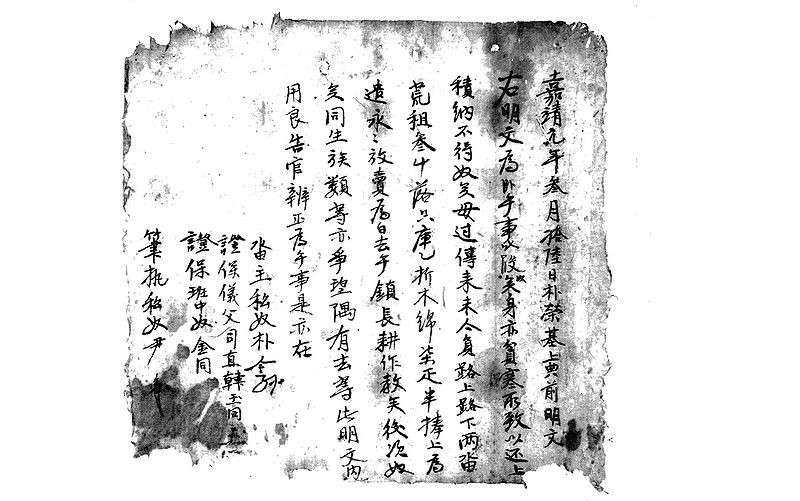 嘉靖元年叁月拾陸日朴榮基亦前明文
右明文為臥乎事叱段矣身亦貧寒所致以还上
積納不得奴矣母过傳来未令員路上路下两畓
荒租叁斗落只庫乙折木綿柒疋半捧上為
遣永〻放賣為白去乎鎖長耕作教矣後次奴
矣同生族類等亦爭望隅有去等此明文內
用良告官辨正為乎事是亦在
畓主私奴朴
證保儀父司直韓玉同
證保班中奴金同
筆執私奴尹